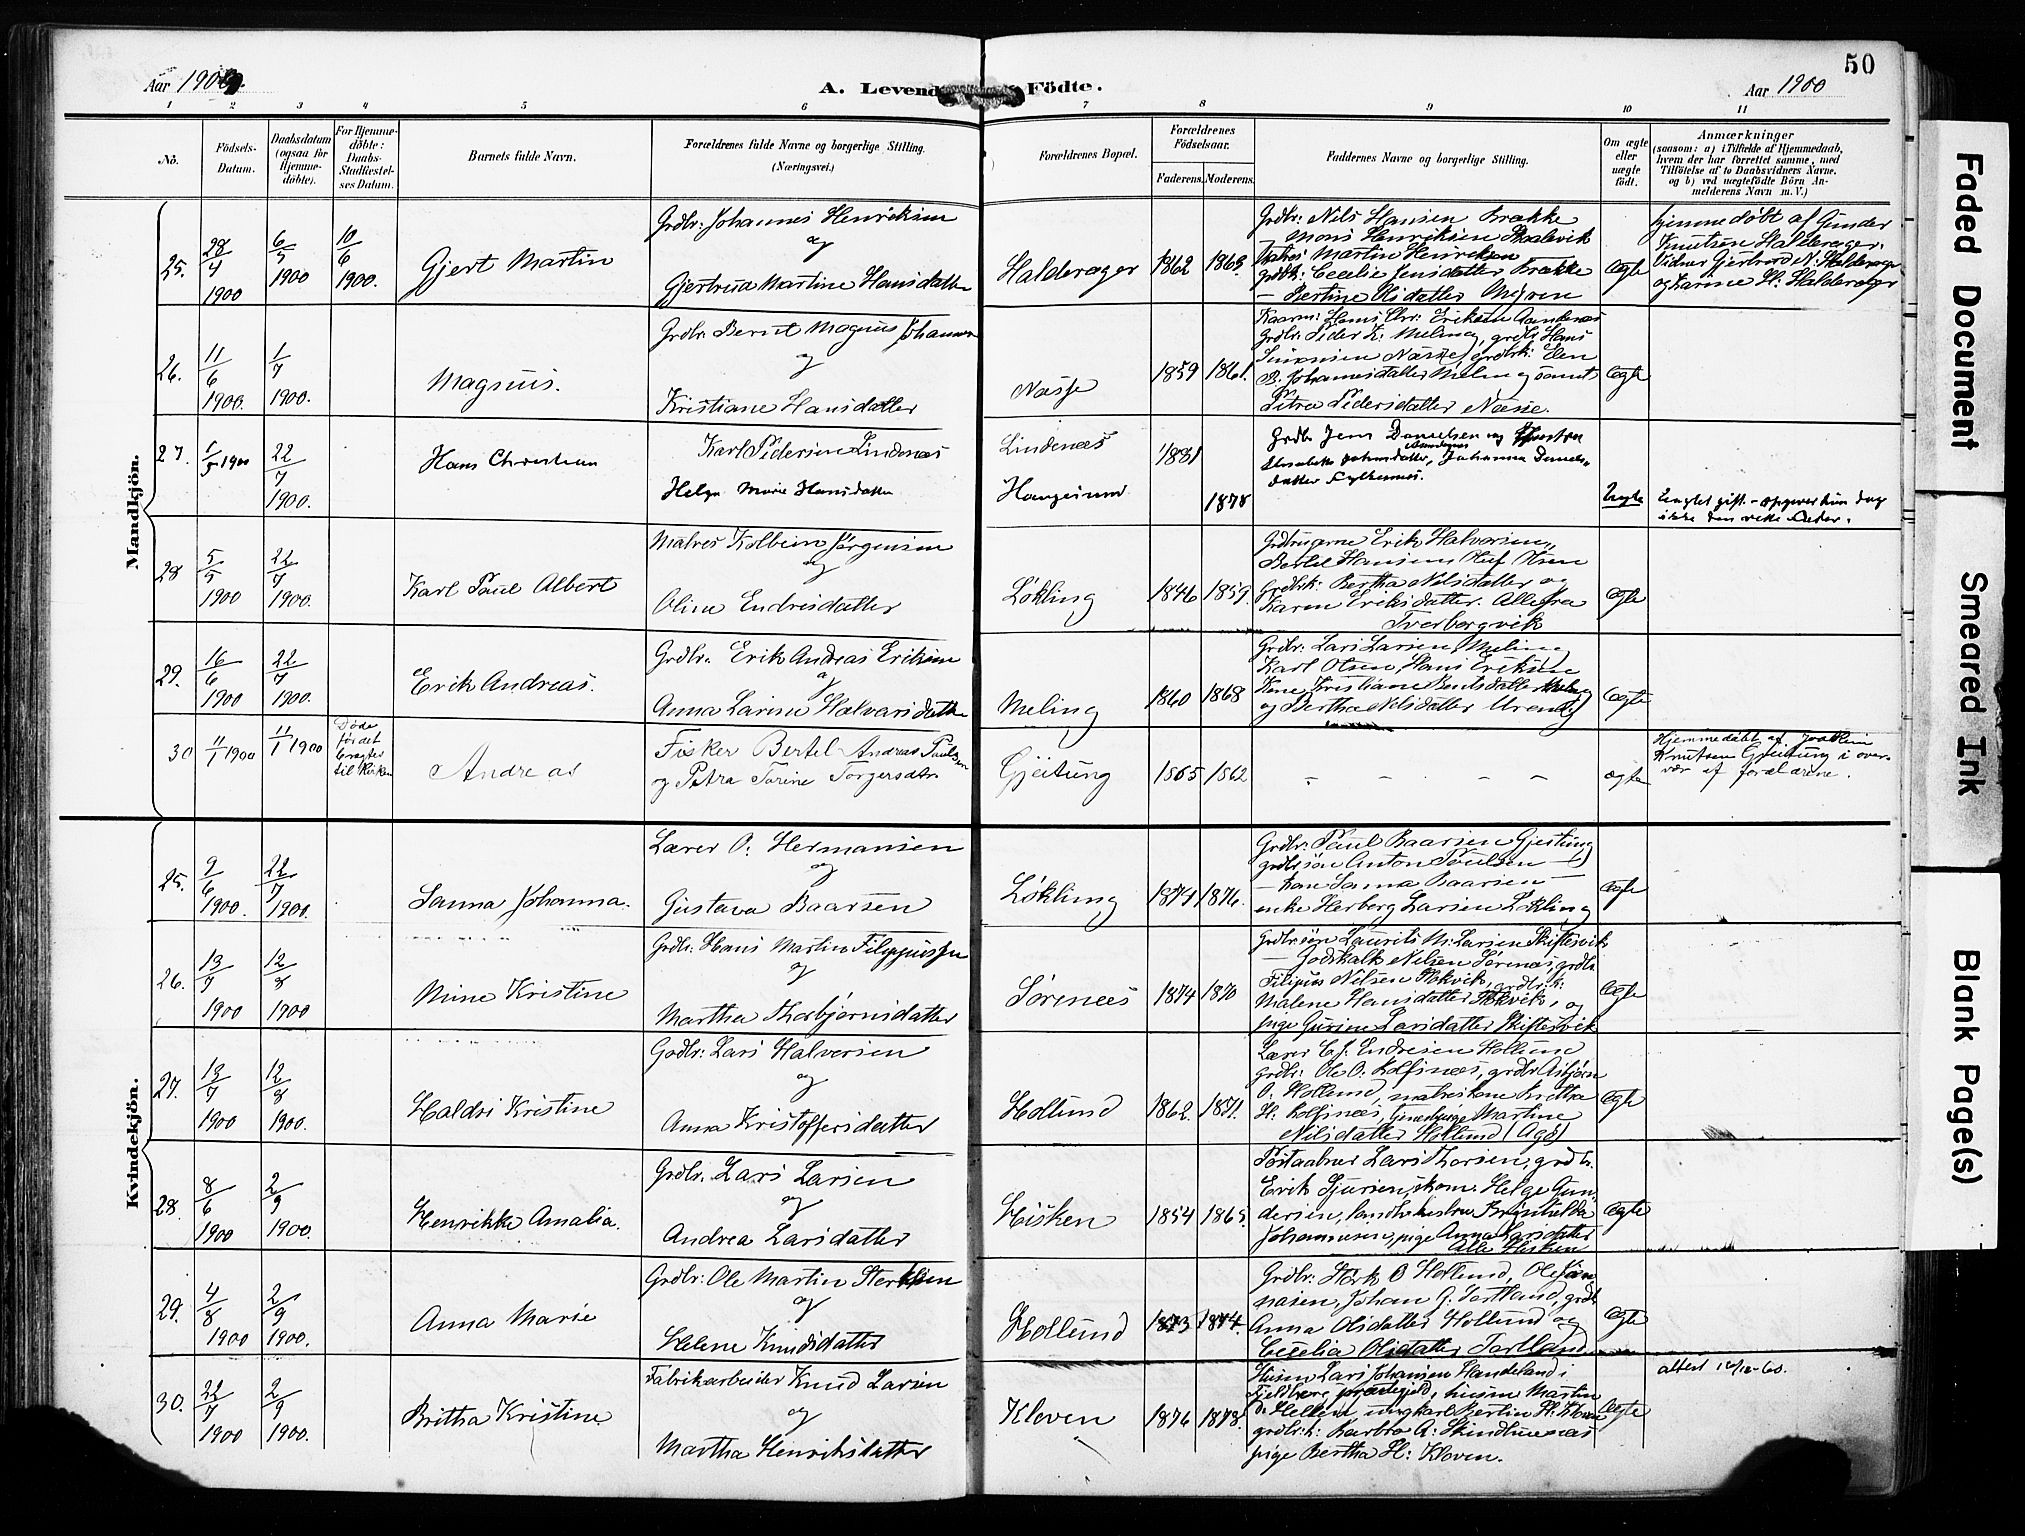 Aar 1900.
A. Levende Födte.
Aar 1900
50
1 2 3 4 5 6 7 8 9 10 11
No.
Födsels-
Datum.
Daabsdatum
(ogsaa for
Hjemme-
döbte).
For Hjemme-
döbte:
Daabs-
Stadfæstel-
ses Datum.
Barnets fulde Navn.
Forældrenes fulde Navne og borgerlige Stilling.
(Næringsvei.)
Forældrenes Bopæl.
Forældrenes
Födselsaar.
Faderens. Moderens.
Faddernes Navne og borgerlige Stilling.
Om ægte
eller
uægte
födt.
Anmærkninger
(saasom: a) i Tilfælde af Hjemmedaab,
hvem der har forrettet samme, med
Tilföielse af to Daabsvidners Navne.
og b) ved uægtefödte Börn An-
melderens Navn m. V.)
Mandkjön.
25. 28/4 1900 6/5 1900 10/6 1900. Gjert Martin
Grdbr. Johannes Henriksen
og
Gjertrua Martine Hansdatter
Halderager 1862 1863.
Grdbr: Nils Hansen Brække
Mons Henriksen
Matros: Martin Henriksen
grdbk: Cecelie Jensdatter Brække
— Bertine Olsdatter
Ægte
hjemmedöbt af Gunder
Knutsen Halderager.
Vidner Gjertrud N. Halderager
og Karine H. Halderager
26. 11/6 1900. 1/7 1900. Magnus.
Grdbr. Bernt Magnus Johannesen
og
Kristiane Hansdatter
Næsse 1859 1861.
Kaarm: Hans Chr. Eriksen
Grdbr. Peder K. Meling, grdbr Hans
Simonsen Næsse, grdbrk: Elen
B. Johannesdatter Meling samt
Petra Pedersdatter Næsse.
Ægte
27. 1/5 1900 22/7 1900. Hans Christian
Karl Pedersen Lindenæs
Helga Marie Hansdatter
Lindenæs 1881
Haugesund 1878
Grdbr Jens Danielsen og Hustru
Elisabeth Johnsdatter, Johanna Daniels-
datter
Uægte
Ugift. - opgiver kun dog
ikke den rette Fader.
28 5/5 1900 22/7 1900. Karl Paul Albert
Matros Kolbein Jørgensen
og
Oline Endresdatter
Løkling 1846 1859.
Grdbrugerne Erik Halvorsen,
Bertel Hansen, Oluf Olsen
Grdbrk: Bertha Nilsdatter og
Karen Eriksdatter. Alle fra
Tverborgvik
Ægte
29. 16/6 1900 22/7 1900. Erik Andreas.
Grdbr. Erik Andreas Eriksen
og
Anna Larine Halvorsdatter
Meling 1860 1868
Grdbr: Lars Larsen Meling
Karl Olsen, Hans Eriksen
Kone Kristiane Berntsdatter Meling
og Bertha Nilsdatter
Ægte
30 11/1 1900 11/1 1900
Døde
før det
bragtes
til Kirken
Andreas
Fisker Bertel Andreas Paulsen
og Petra Torine Torgersdtr.
Gjeitung 1865 1862 - - - - ægte
Hjemmedöbt af Joakim
Knutsen Gjeitung i over-
vær af forældrene.
Kvindekjön.
25. 9/6 1900. 22/7 1900. Sanna Johanna.
Lærer O. Hermansen
og
Gustava Baarsen
Løkling 1871 1876.
Grdbr: Paul Baarsen Gjeitung
grdbrsøn Anton Poulsen —
— kone Sanna Baarsen —
enke Herborg Larsen Løkling
Ægte
26. 13/7 1900 12/8 1900 Mine Kristine
Grdbr. Hans Martin Filippussen
og
Martha Thorbjørnsdatter
Sørenæs 1874 1870
Grdbrsøn Laurits M. Larsen Skiftesvik
— Godskalk Nilsen Sørenæs, grdbr.
Filipus Nilsen Stokvik, grdbr.k:
Malene Hansdatter Stokvik, og
pige Gurine Larsdatter Skiftesvik
Ægte
27. 13/7 1900 12/8 1900. Haldri Kristine
Grdbr. Lars Halvorsen
og
Anna Kristoffersdatter
Hollund 1862. 1871.
Lærer C. J. Endresen Hollund
grdbr. Ole O. Kolfsnæs, grdbr Asbjørn
O. Hollund, matroskone Brittha
H. Kolfsnæs, tjenestepige Martine
Nilsdatter Hollund (Agö)
Ægte
28. 8/6 1900 2/9 1900. Henrikke Amalia.
Grdbr. Lars Larsen
og
Andrea Larsdatter
Hisken 1854 1865.
Postaabner Lars Larsen, grdbr.
Erik Sjursen, skom. Helge Gun-
dersen, Brynhilda
Johannesen, pige Anna Larsdatter
Alle Hisken
Ægte
29. 4/8 1900 2/9 1900. Anna Marie
Grdbr: Ole Martin Sterksen
og
Helene Knudsdatter
Hollund 1873 1874.
Grdbr: Størk O Hollund, Ole Jon-
nasen, Johan J. Tortland, grdbr
Anna Olsdatter Hollund og
Cecelia Olsdatter Tortland
Ægte
30. 22/7 1900 2/9 1900. Brittha Kristine
Fabrikarbeider Knud Larsen
og
Martha Henriksdatter
Kloven 1876 1878.
Husm Lars Johansen Handeland i
Fjelberg præstegjeld, husm Martin
O. Hellen, ungkarl Bertin H. Kloven
grdbr.k: Barbra A. Skindtuenæs
pige Bertha H: Kloven.
Ægte
attest 12/12-60.
Faded Document
Smeared Ink
Blank Page(s)